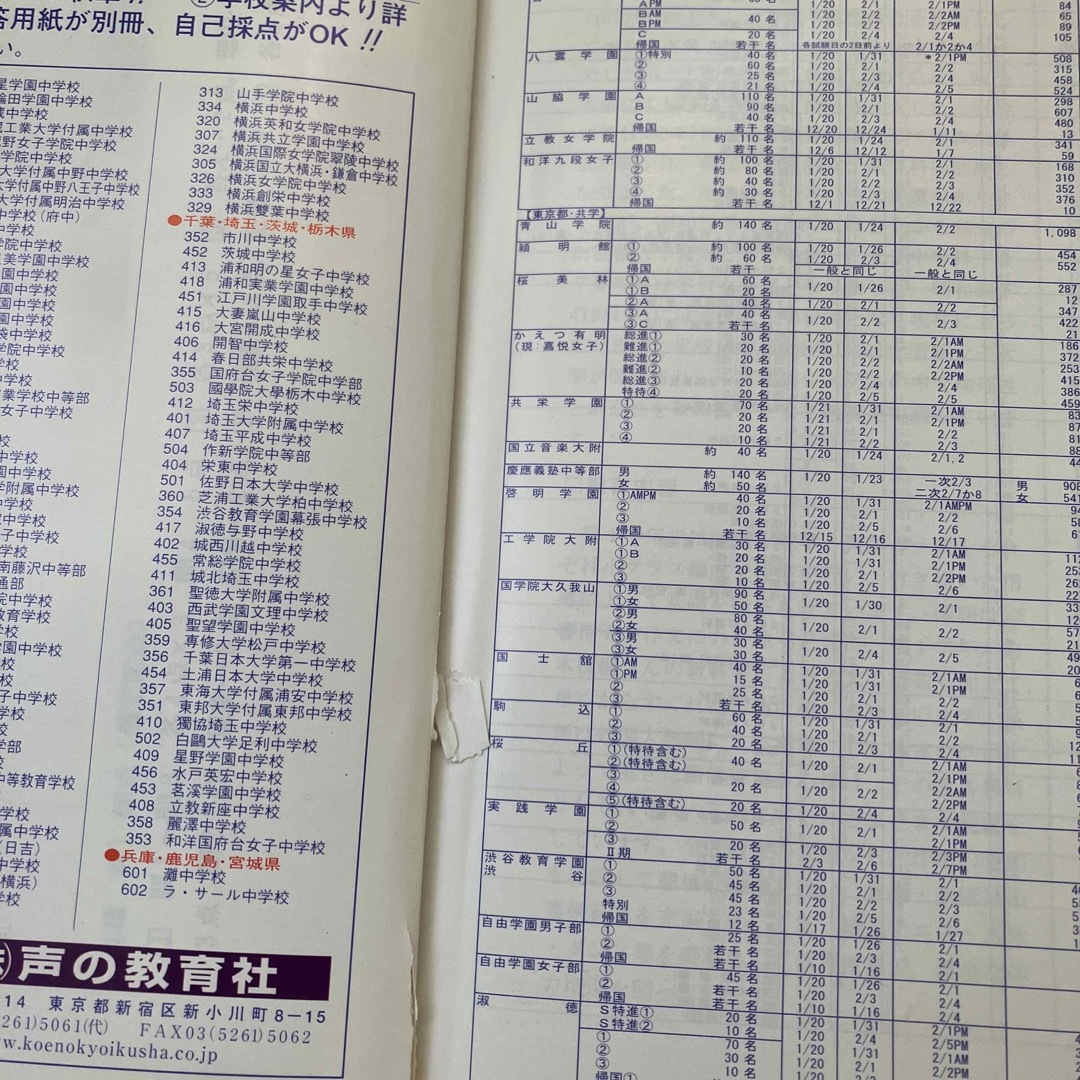 学校案内より詳
答用紙が別冊、自己採点がOK!!
い。
星学園中学校
輪田学園中学校
蔵中学校
工業大学付属中学校
野女子学院中学校
学院中学校
大学付属中野中学校
大学付属中野八王子中学校
大学付属明治中学校
中学校(府中)
中学校
学院中学校
里美学園中学校
園中学校
学院中学校
中学校
業学校中等部
女子中学校
中学校
園中学校
学附属中学校
中学校
子中学校
南藤沢中等部
通部
院中学校
教育学校
学校
学園中学校
子中学校
学部
中等教育学校
属中学校
(日吉)
横浜)
313 山手学院中学校
334 横浜中学校
320 横浜英和女学院中学校
307 横浜共立学園中学校
324 横浜国際女学院翠陵中学校
305 横浜国立大横浜・鎌倉中学校
326 横浜女学院中学校
333 横浜創栄中学校
329 横浜雙葉中学校
●千葉・埼玉・茨城・栃木県
352 市川中学校
452 茨城中学校
413 浦和明の星女子中学校
418 浦和実業学園中学校
451 江戸川学園取手中学校
415 大妻嵐山中学校
416 大宮開成中学校
406 開智中学校
414 春日部共栄中学校
355 国府台女子学院中学部
503 國學院大學栃木中学校
412 埼玉栄中学校
401 埼玉大学附属中学校
407 埼玉平成中学校
504 作新学院中等部
404 栄東中学校
501 佐野日本大学中学校
360 芝浦工業大学柏中学校
354 渋谷教育学園幕張中学校
417 淑徳与野中学校
402 城西川越中学校
455 常総学院中学校
411 城北埼玉中学校
361 聖徳大学附属中学校
403 西武学園文理中学校
405 聖望学園中学校
359 専修大学松戸中学校
356 千葉日本大学第一中学校
454 土浦日本大学中学校
357 東海大学付属浦安中学校
351 東邦大学付属東邦中学校
410 獨協埼玉中学校
502 白鷗大学足利中学校
409 星野学園中学校
456 水戸英宏中学校
453 茗溪学園中学校
408 立教新座中学校
358 麗澤中学校
353 和洋国府台女子中学校
●兵庫・鹿児島・宮城県
601 灘中学校
602 ラ・サール中学校
声の教育社
14 東京都新宿区新小川町8-15
5261)5061(代) FAX03(5261)5062
www.koenokyoikusha.co.jp
A PM 1/20 2/1 2/1PM 84
B AM 40 名 1/20 2/2 2/2AM 65
B PM 1/20 2/2 2/2PM 89
C 20 名 1/20 2/4 2/4 105
帰国 若干名 各試験日の2日前より 2/1か2か4
八雲学園 ①特別 40 名 1/20 1/31 *2/1PM 508
② 60 名 1/20 2/1 2/2 315
③ 25 名 1/20 2/3 2/4 458
④ 21 名 1/20 2/4 2/5 524
山脇学園 A 110 名 1/20 1/31 2/1 298
B 90 名 1/20 2/1 2/2 607
C 40 名 1/20 2/3 2/4 480
帰国 若干名 12/20 12/24 1/11 13
立教女学院 約 110 名 1/20 1/24 2/1 341
帰国 若干名 12/6 12/12 1/7 59
和洋九段女子 ① 約 100 名 1/20 1/31 2/1 168
② 約 80 名 1/20 2/1 2/2 310
③ 約 40 名 1/20 2/2 2/3 352
④ 約 30 名 1/20 2/3 2/4 376
帰国 若干名 12/1 12/21 12/22 10
[東京都・共学]
青山学院 約 140 名 1/20 1/24 2/2 1,098
穎明館 ① 約 100 名 1/20 1/26 2/2 454
② 約 60 名 1/20 2/3 2/4 552
帰国 若干 一般と同じ 一般と同じ
桜美林 ①A 60 名 1/20 1/26 2/1 287
①B 20 名 12
②A 40 名 1/20 2/1 2/2 347
③A 40 名 1/20 2/2 2/3 422
③C 若干名 21
かえつ有明 総進① 30 名 1/20 2/1 2/1AM 186
(現:嘉悦女子) 難進① 20 名 1/20 2/1 2/1PM 372
総進② 20 名 1/20 2/2 2/2AM 253
難進② 10 名 1/20 2/2 2/2PM 415
総進③ 20 名 1/20 2/4 2/4 386
特待④ 20 名 1/20 2/5 2/5 459
共栄学園 ① 70 名 1/21 1/31 2/1AM 83
② 20 名 1/21 2/1 2/1PM 87
③ 20 名 1/21 2/1 2/2 81
④ 10 名 1/21 2/2 2/3 88
国立音楽大附 約 40 名 1/20 1/24 2/1,2 44
慶應義塾中等部 男 約 140 名 1/20 1/23 一次2/3 男 908
女 約 50 名 二次2/7か8 女 541
啓明学園 ①AMPM 40 名 1/20 1/31 2/1AMPM
② 20 名 1/20 2/1 2/2
③ 10 名 1/20 2/5 2/6
帰国 若干名 12/15 12/16 12/17
工学院大附 ①A 30 名 1/20 1/31 2/1AM
①B 20 名 1/20 1/31 2/1PM
② 20 名 1/20 2/1 2/2PM
③ 10 名 1/20 2/5 2/6
国学院大久我山 ①男 90 名 1/20 1/30 2/1
①女 50 名
②男 80 名 1/20 2/1 2/2
②女 40 名
③男 30 名 1/20 2/4 2/5
③女 30 名
国士舘 ①AM 40 名 1/20 1/31 2/1AM
①PM 15 名 1/20 1/31 2/1PM
② 25 名 1/20 2/1 2/2
③ 若干名 1/20 2/3 2/4
駒込 ① 60 名 1/20 1/31 2/1
② 40 名 1/20 2/1 2/2
③ 20 名 1/20 2/3 2/4
桜丘 ①(特待含む) 40 名 1/20 2/1 2/1AM
②(特待含む) 2/1PM
③ 20 名 1/20 2/2 2/2AM
④ 2/2PM
⑤(特待含む) 20 名 1/20 2/4 2/4
実践学園 ① 50 名 1/20 2/1 2/1AM
② 2/1PM
③ 20 名 1/20 2/3 2/3PM
Ⅱ期 若干名 2/3 2/6 2/7PM
渋谷教育学園渋谷 ① 50 名 1/20 1/31 2/1
② 45 名 1/20 2/1 2/2
③ 45 名 1/20 2/2 2/3
特別 23 名 1/20 2/5 2/6
帰国 12 名 1/17 1/26 1/27
自由学園男子部 ① 25 名 1/20 1/26 2/1
② 若干名 1/20 2/3 2/4
帰国 若干名 1/10 1/16
自由学園女子部 ① 45 名 1/20 1/26 2/1
② 若干名 1/20 2/3 2/4
帰国 若干名 1/10 1/16 2/4
淑徳 S特進① 20 名 1/20 1/31 2/1PM
S特進② 10 名 1/20 2/4 2/5PM
① 70 名 1/20 1/31 2/1AM
② 30 名 1/20 2/1 2/2PM
③ 10 名
帰国①